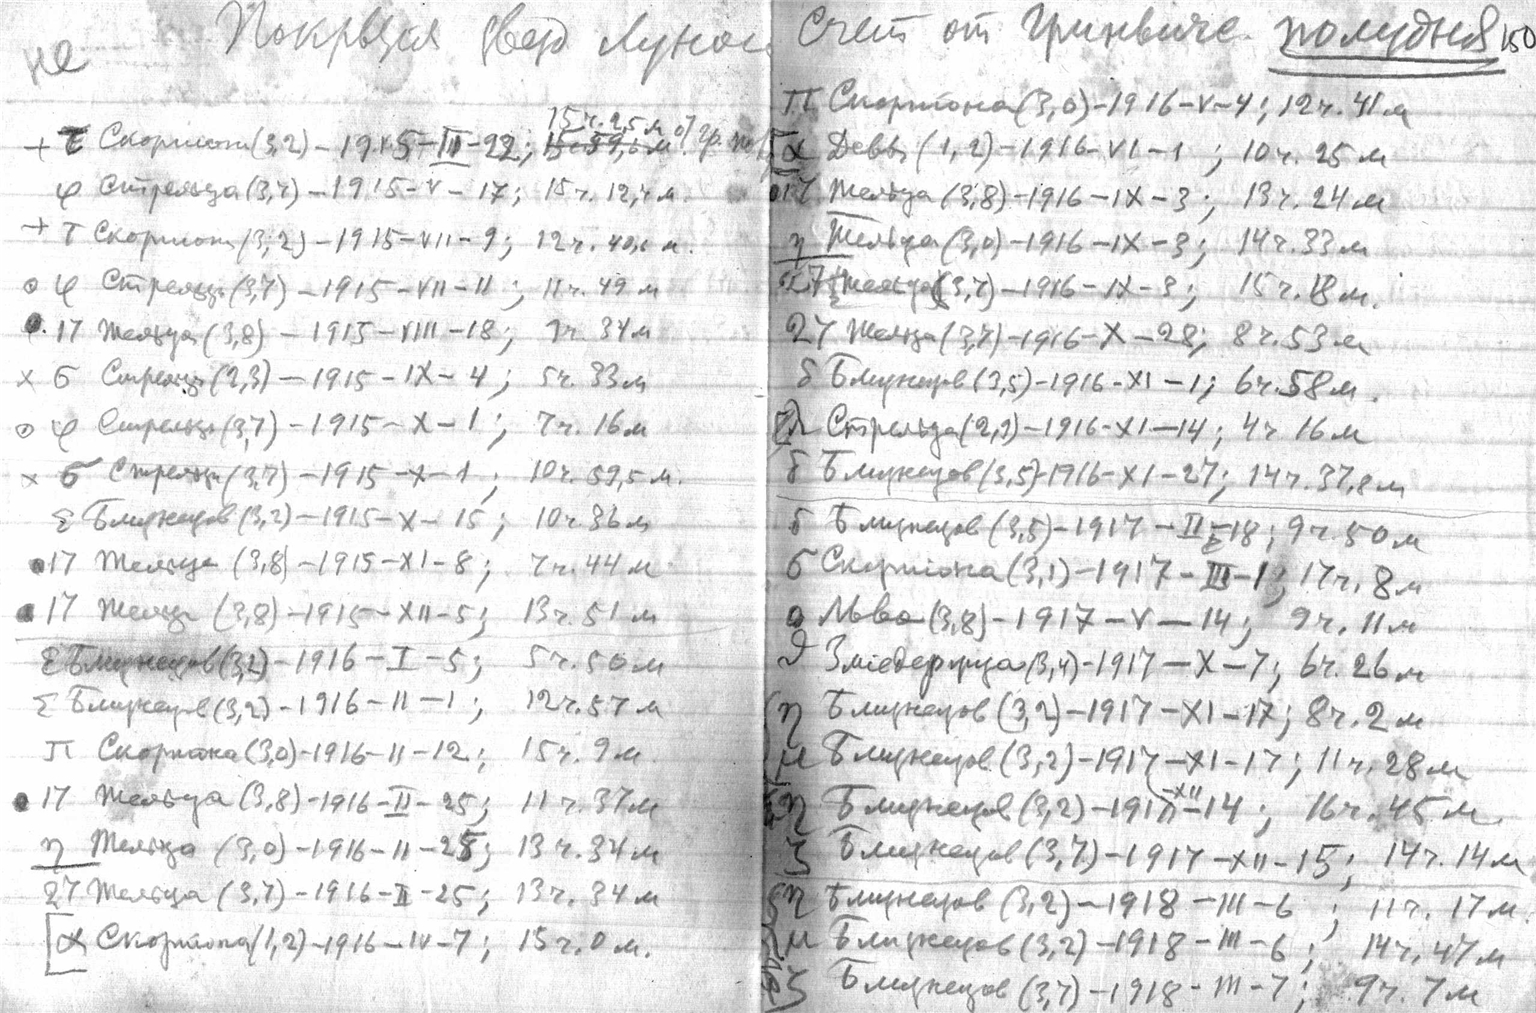 не
Покрытия звезд Луною
15 ч. 2,5 м от гр. по
+ τ Скорпиона (3,2) – 1915–III–22;
φ Стрельца (3,4) – 1915–V–17; 15 ч. 12,4 м.
+ τ Скорпиона (3,2) – 1915–VII–9; 12 ч. 40,6 м.
о φ Стрельца (3,7) – 1915–VII–11; 11 ч. 49 м
17 Тельца (3,8) – 1915–VIII–18; 34 м
х б Стрельца (2,3) – 1915–IX–4; 5 ч. 33 м
о φ Стрельца (3,7) – 1915–X–1; 7 ч. 16 м
х б Стрельца (3,7) – 1915–X–1; 10 ч. 59,5 м.
ε Близнецов (3,2) – 1915–X–15; 10 ч. 36 м
17 Тельца (3,8) – 1915–XI–8; 7 ч. 44 м
17 Тельца (3,8) – 1915–XII–5; 13 ч. 51 м
ε Близнецов (3,2) – 1916–I–5; 5 ч. 50 м
ε Близнецов (3,2) – 1916–II–1; 12 ч. 57 м
π Скорпиона (3,0) – 1916–II–12; 15 ч. 9 м
17 Тельца (3,8) – 1916–II–25; 11 ч. 37 м
η Тельца (3,0) – 1916–II–25; 13 ч. 34 м
27 Тельца (3,7) – 1916–II–25; 13 ч. 34 м
[α Скорпиона (1,2) – 1916–IV–7; 15 ч. 0 м.
Счет от Гринвич. полудня 150
π Скорпиона (3,0) – 1916–V–4; 12 ч. 41 м
[α Девы (1,2) – 1916–VI–1; 10 ч. 25 м
17 Тельца (3,8) – 1916–IX–3; 13 ч. 24 м
η Тельца (3,0) – 1916–IX–3; 14 ч. 33 м
27 Тельца (3,7) – 1916–IX–3; 15 ч. 18 м.
27 Тельца (3,7) – 1916–X–28; 8 ч. 53 м
δ Близнецов (3,5) – 1916–XI–1; 6 ч. 58 м.
λ Стрельца (2,9) – 1916–XI–14; 4 ч 16 м
δ Близнецов (3,5) – 1916–XI–27; 14 ч. 37,8 м
δ Близнецов (3,5) – 1917–II–18; 9 ч. 50 м
б Скорпиона (3,1) – 1917–III–1; 17 ч. 8 м
о Льва (3,8) – 1917–V–14; 9 ч. 11 м
θ Змиедержца (3,4) – 1917–X–7; 6 ч. 26 м
η Близнецов (3,2) – 1917–XI–17; 8 ч. 2 м
μ Близнецов (3,2) – 1917–XI–17; 11 ч. 28 м
η Близнецов (3,2) – 1917–XII–14; 16 ч. 45 м.
ζ Близнецов (3,7) – 1917–XII–15; 14 ч. 14 м
η Близнецов (3,2) – 1918–III–6; 11 ч. 17 м.
μ Близнецов (3,2) – 1918–III–6; 14 ч. 47 м
ζ Близнецов (3,7) – 1918–III–7; 9 ч. 7 м